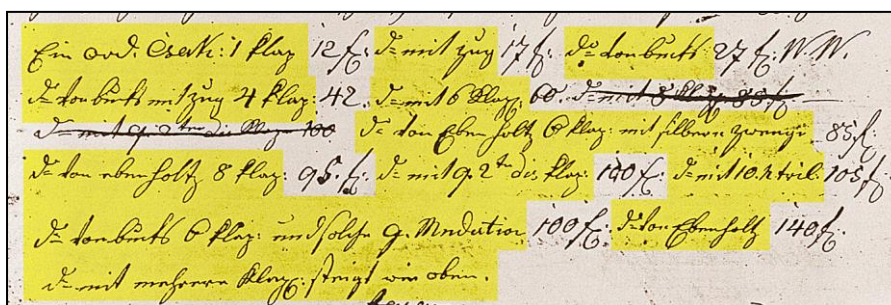 Ein ord: Csak: 1 Klap 12 f: do mit zug 17 f: do von buchs: 27 f: W.W.
do von buchs mit zug 4 Klap: 42. do mit 6 Klap: 60. do mit 8 Klap: 85 f
do mit 9. 2ten dis Klap 100 do von Eben holtz 6 klap: mit silbern zwengi. 85 f:
do von ebenholtz 8 klap: 95. f: do mit 9. 2te dis klap: 100 f: do mit 10. tril: 105 f:
do von buchs 6 klap: und solche g. Mudation 100 f: do von Ebenholtz 140 f:
do mit mehrern Klap: steigt wie oben.